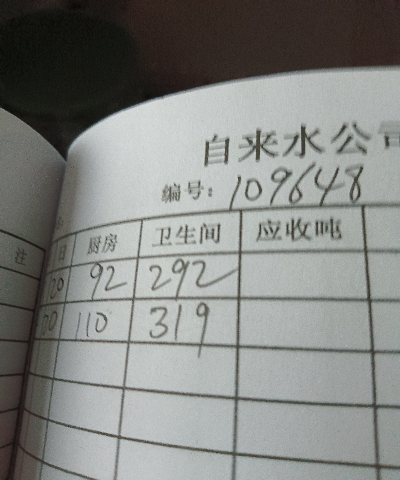 自来水公司
编号: 109648
注
日 厨房 卫生间 应收吨
20 92 292
20 110 319